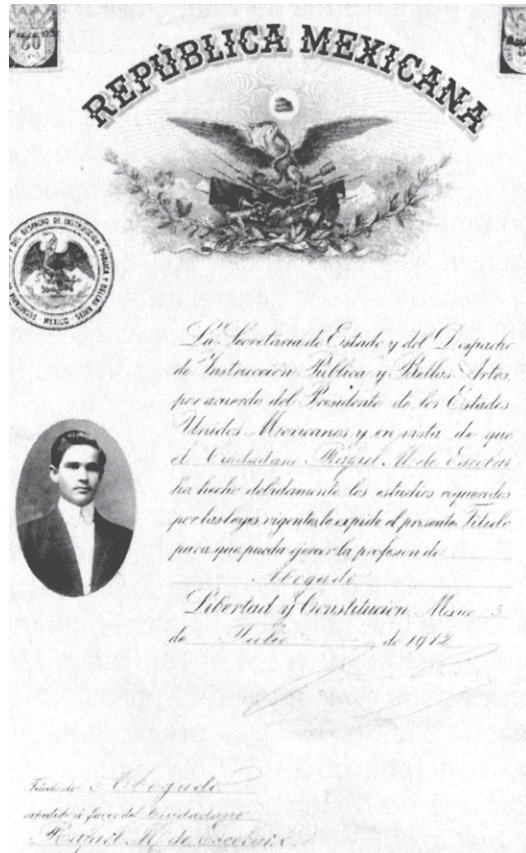 50
REPÚBLICA MEXICANA
SECRETARIA DEL DESPACHO DE INSTRUCCION PUBLICA Y BELLAS ARTES MEXICO
La Secretaria de Estado y del Despacho
de Instrucción Pública y Bellas Artes,
por acuerdo del Presidente de los Estados
Unidos Mexicanos y en vista de que
el Ciudadano Rafael M. de Escobar
ha hecho debidamente los estudios requeridos
por las leyes vigentes, le expide el presente Titulo
para que pueda ejercer la profesion de
Abogado
Libertad y Constitución. Mexico 5
de Julio de 1912
Titulo de Abogado
expedido á favor del Ciudadano
Rafael M. de Escobar.